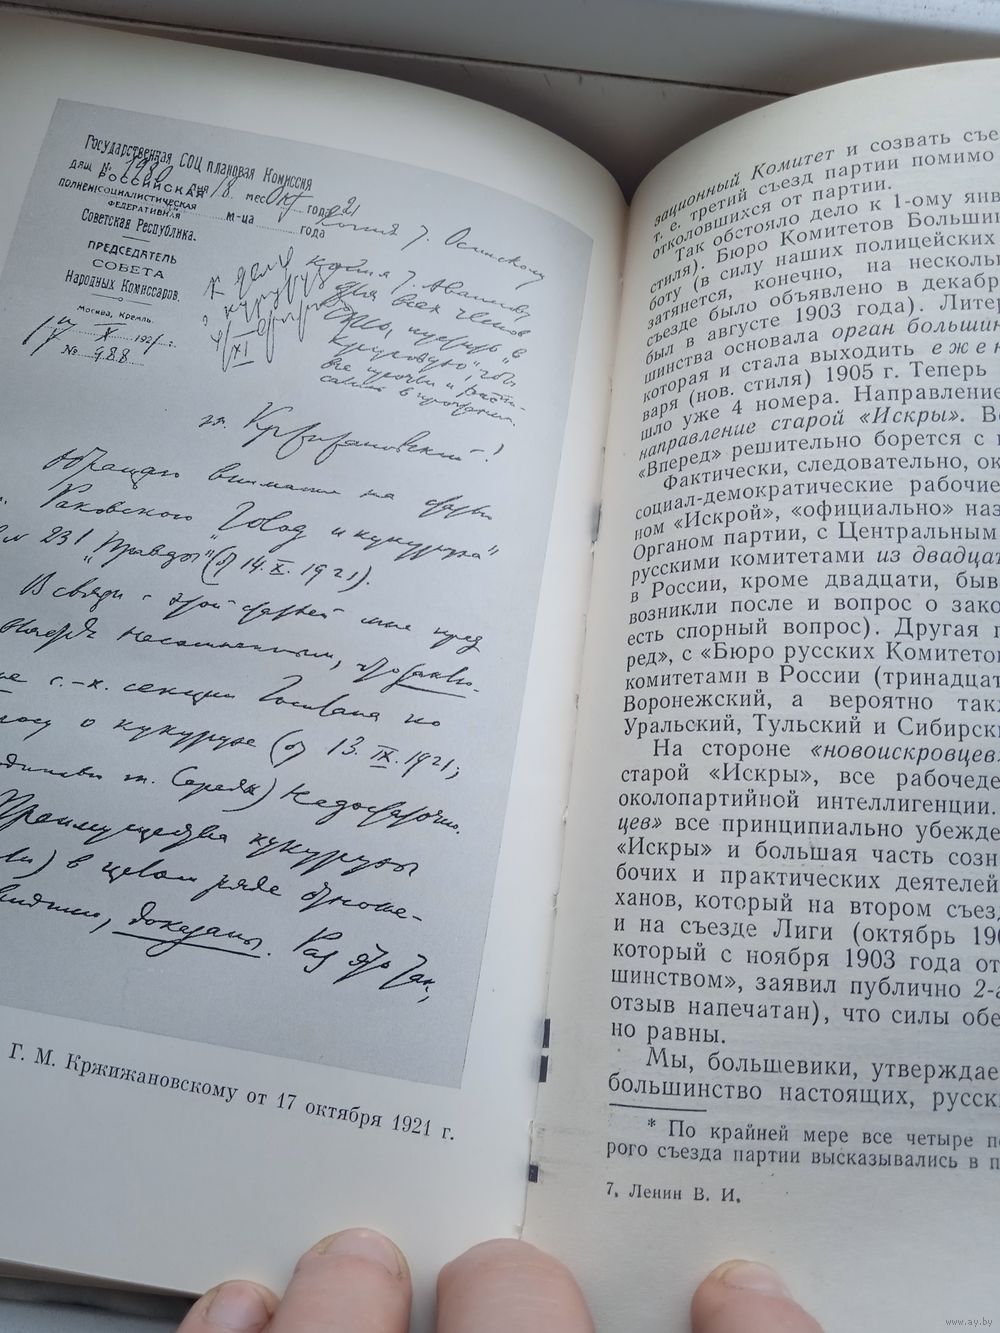 Государственная СОЦ плановая Комиссия
дящ № 1980 дня 18 мес Окт года 21
РОССИЙСКАЯ
СОЦИАЛИСТИЧЕСКАЯ
ФЕДЕРАТИВНАЯ
м-ца года
Советская Республика.
ПРЕДСЕДАТЕЛЬ
СОВЕТА
Народных Комиссаров.
Москва, Кремль.
17 X 1921 г.
№ 988
Копия т. Осинскому
копия т. Иванову
для всех членов
К делу
о кукурузе
XI
т. Кржижановский!
Обращаю внимание на статью
Раковского "Голод и кукуруза"
в № 231 "Правды" (от 14.X.1921).
В связи с этой статьей мне пред
с.-х. секции Госплана по
о кукурузе (от 13. IX. 1921;
т. Сереж) недостаточно.
Преимущества кукурузы
) в целом ряде отноше-
доказаны. Раз это так,
Г. М. Кржижановскому от 17 октября 1921 г.
зационный Комитет и созвать съе
т. е. третий съезд партии помимо
отколовшихся от партии.
Так обстояло дело к 1-ому янв
стиля). Бюро Комитетов Большин
боту (в силу наших полицейских
затянется, конечно, на нескольк
съезде было объявлено в декабр
был в августе 1903 года). Литер
шинства основала орган большин
которая и стала выходить ежен
варя (нов. стиля) 1905 г. Теперь
шло уже 4 номера. Направление
направление старой «Искры». Во
«Вперед» решительно борется с
Фактически, следовательно, ок
социал-демократические рабочие
ном «Искрой», «официально» наз
Органом партии, с Центральным
русскими комитетами из двадцат
в России, кроме двадцати, быв
возникли после и вопрос о зако
есть спорный вопрос). Другая п
ред», с «Бюро русских Комитетов
комитетами в России (тринадцат
Воронежский, а вероятно такж
Уральский, Тульский и Сибирск
На стороне «новоискровцев»
старой «Искры», все рабочеде
околопартийной интеллигенции.
цев» все принципиально убежде
«Искры» и большая часть созн
бочих и практических деятелей
ханов, который на втором съезд
и на съезде Лиги (октябрь 190
который с ноября 1903 года от
шинством», заявил публично 2-
отзыв напечатан), что силы обе
но равны.
Мы, большевики, утверждае
большинство настоящих, русск
* По крайней мере все четыре п
рого съезда партии высказывались в п
7. Ленин В. И.
www.ay.by